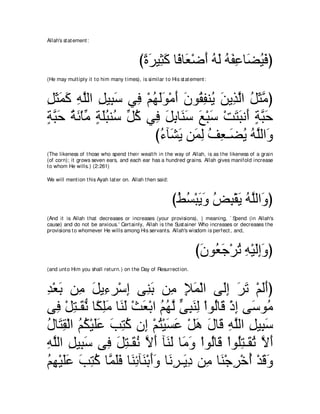 Allah's statement:
(فَيُضَاعِفَهُ لَهُ أَضْعَافًا كَثِيرَةً)
(He may multiply it to him many times), is similar to His statement:
(مَّثَلُ الَّذِينَ يُنفِقُونَ أَمْوَلَهُمْ فِي سَبِيلِ اللَّهِ كَمَثَلِ
حَبَّةٍ أَنبَتَتْ سَبْعَ سَنَابِلَ فِي كُلِّ سُنبُلَةٍ مِّاْئَةُ حَبَّةٍ
وَاللَّهُ يُضَـعِفُ لِمَن يَشَآءُ)
(The likeness of those who spend their wealth in the way of Allah, is as the likeness of a grain
(of corn); it grows seven ears, and each ear has a hundred grains. Allah gives manifold increase
to whom He wills.) (2:261)
We will mention this Ayah later on. Allah then said:
(وَاللَّهُ يَقْبِضُ وَيَبْسُطُ)
(And it is Allah that decreases or increases (your provisions), ) meaning, `Spend (in Allah's
cause) and do not be anxious.' Certainly, Allah is the Sustainer Who increases or decreases the
provisions to whomever He wills among His servants. Allah's wisdom is perfect, and,
(وَإِلَيْهِ تُرْجَعُونَ)
(and unto Him you shall return.) on the Day of Resurrection.
(أَلَمْ تَرَ إِلَى الْمَلإِ مِن بَنِى إِسْرءِيلَ مِن بَعْدِ
مُوسَى إِذْ قَالُواْ لِنَبِىٍّ لَّهُمُ ابْعَثْ لَنَا مَلِكًا نُّقَـتِلْ فِى
سَبِيلِ اللَّهِ قَالَ هَلْ عَسَيْتُمْ إِن كُتِبَ عَلَيْكُمُ الْقِتَالُ
أَلاَّ تُقَـتِلُواْ قَالُواْ وَمَا لَنَآ أَلاَّ نُقَـتِلَ فِى سَبِيلِ اللَّهِ
وَقَدْ أُخْرِجْنَا مِن دِيَـرِنَا وَأَبْنَآئِنَا فَلَمَّا كُتِبَ عَلَيْهِمُ